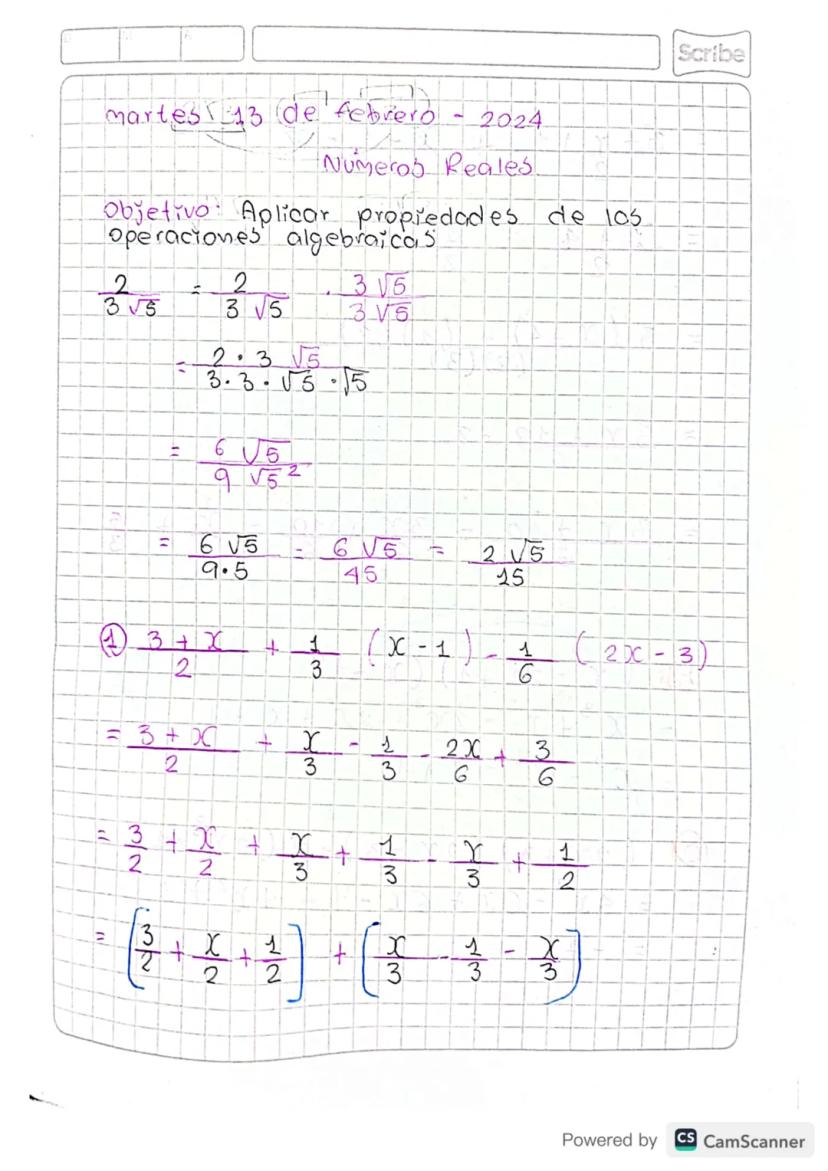 Scribe
martes 13 de febrero - 2024
Números Reales
Objetivo: Aplicar propiedades de los
operaciones algebraicas
2/(3√5) = 2/(3√5) · (3√5)/(3√5)
= (2 · 3 √5)/(3 · 3 · √5 · √5)
= (6√5)/(9√5²)
= (6√5)/(9·5) = (6√5)/45 = (2√5)/15
① (3 + x)/2 + 1/3 (x - 1) - 1/6 (2x - 3)
= (3 + x)/2 + x/3 - 1/3 - 2x/6 + 3/6
= 3/2 + x/2 + x/3 + 1/3 - x/3 + 1/2
= [3/2 + x/2 + 1/2] + [x/3 - 1/3 - x/3]
Powered by CS CamScanner